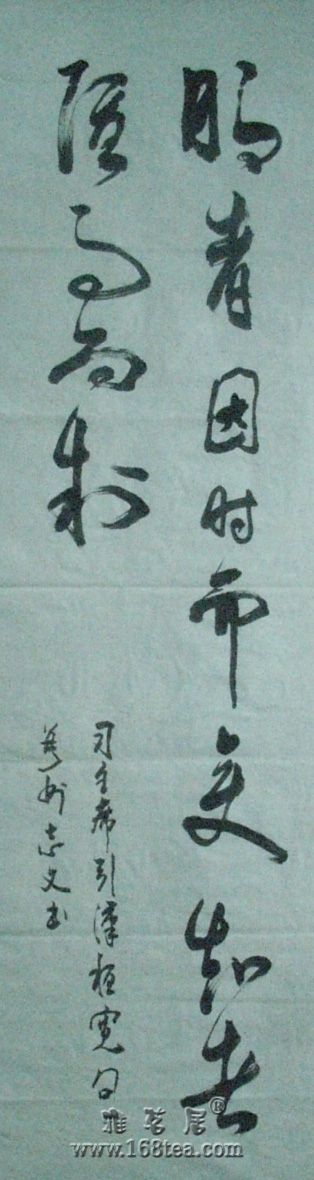 明者因时而变知者
随事而制
习主席引漢桓宽句
州志文书
雅茗居®
www.168tea.com